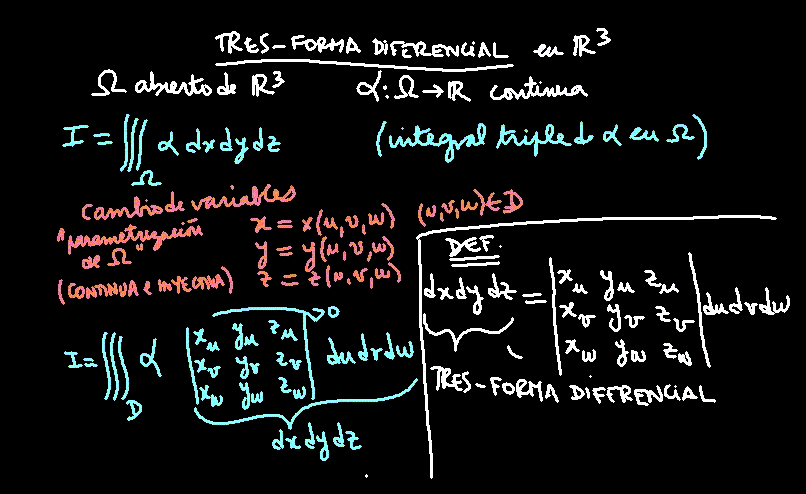 TRES-FORMA DIFERENCIAL en ℝ³
Ω abierto de ℝ³   α: Ω → ℝ continua
I = ∭_Ω α dx dy dz   (integral triple de α en Ω)
Cambio de variables
"parametrización de Ω"
(CONTINUA e INYECTIVA)
x = x(u,v,w)   (u,v,w) ∈ D
y = y(u,v,w)
z = z(u,v,w)
I = ∭_D α |x_u y_u z_u; x_v y_v z_v; x_w y_w z_w| du dv dw
>0
dx dy dz
DEF.
dx dy dz = |x_u y_u z_u; x_v y_v z_v; x_w y_w z_w| du dv dw
TRES-FORMA DIFERENCIAL